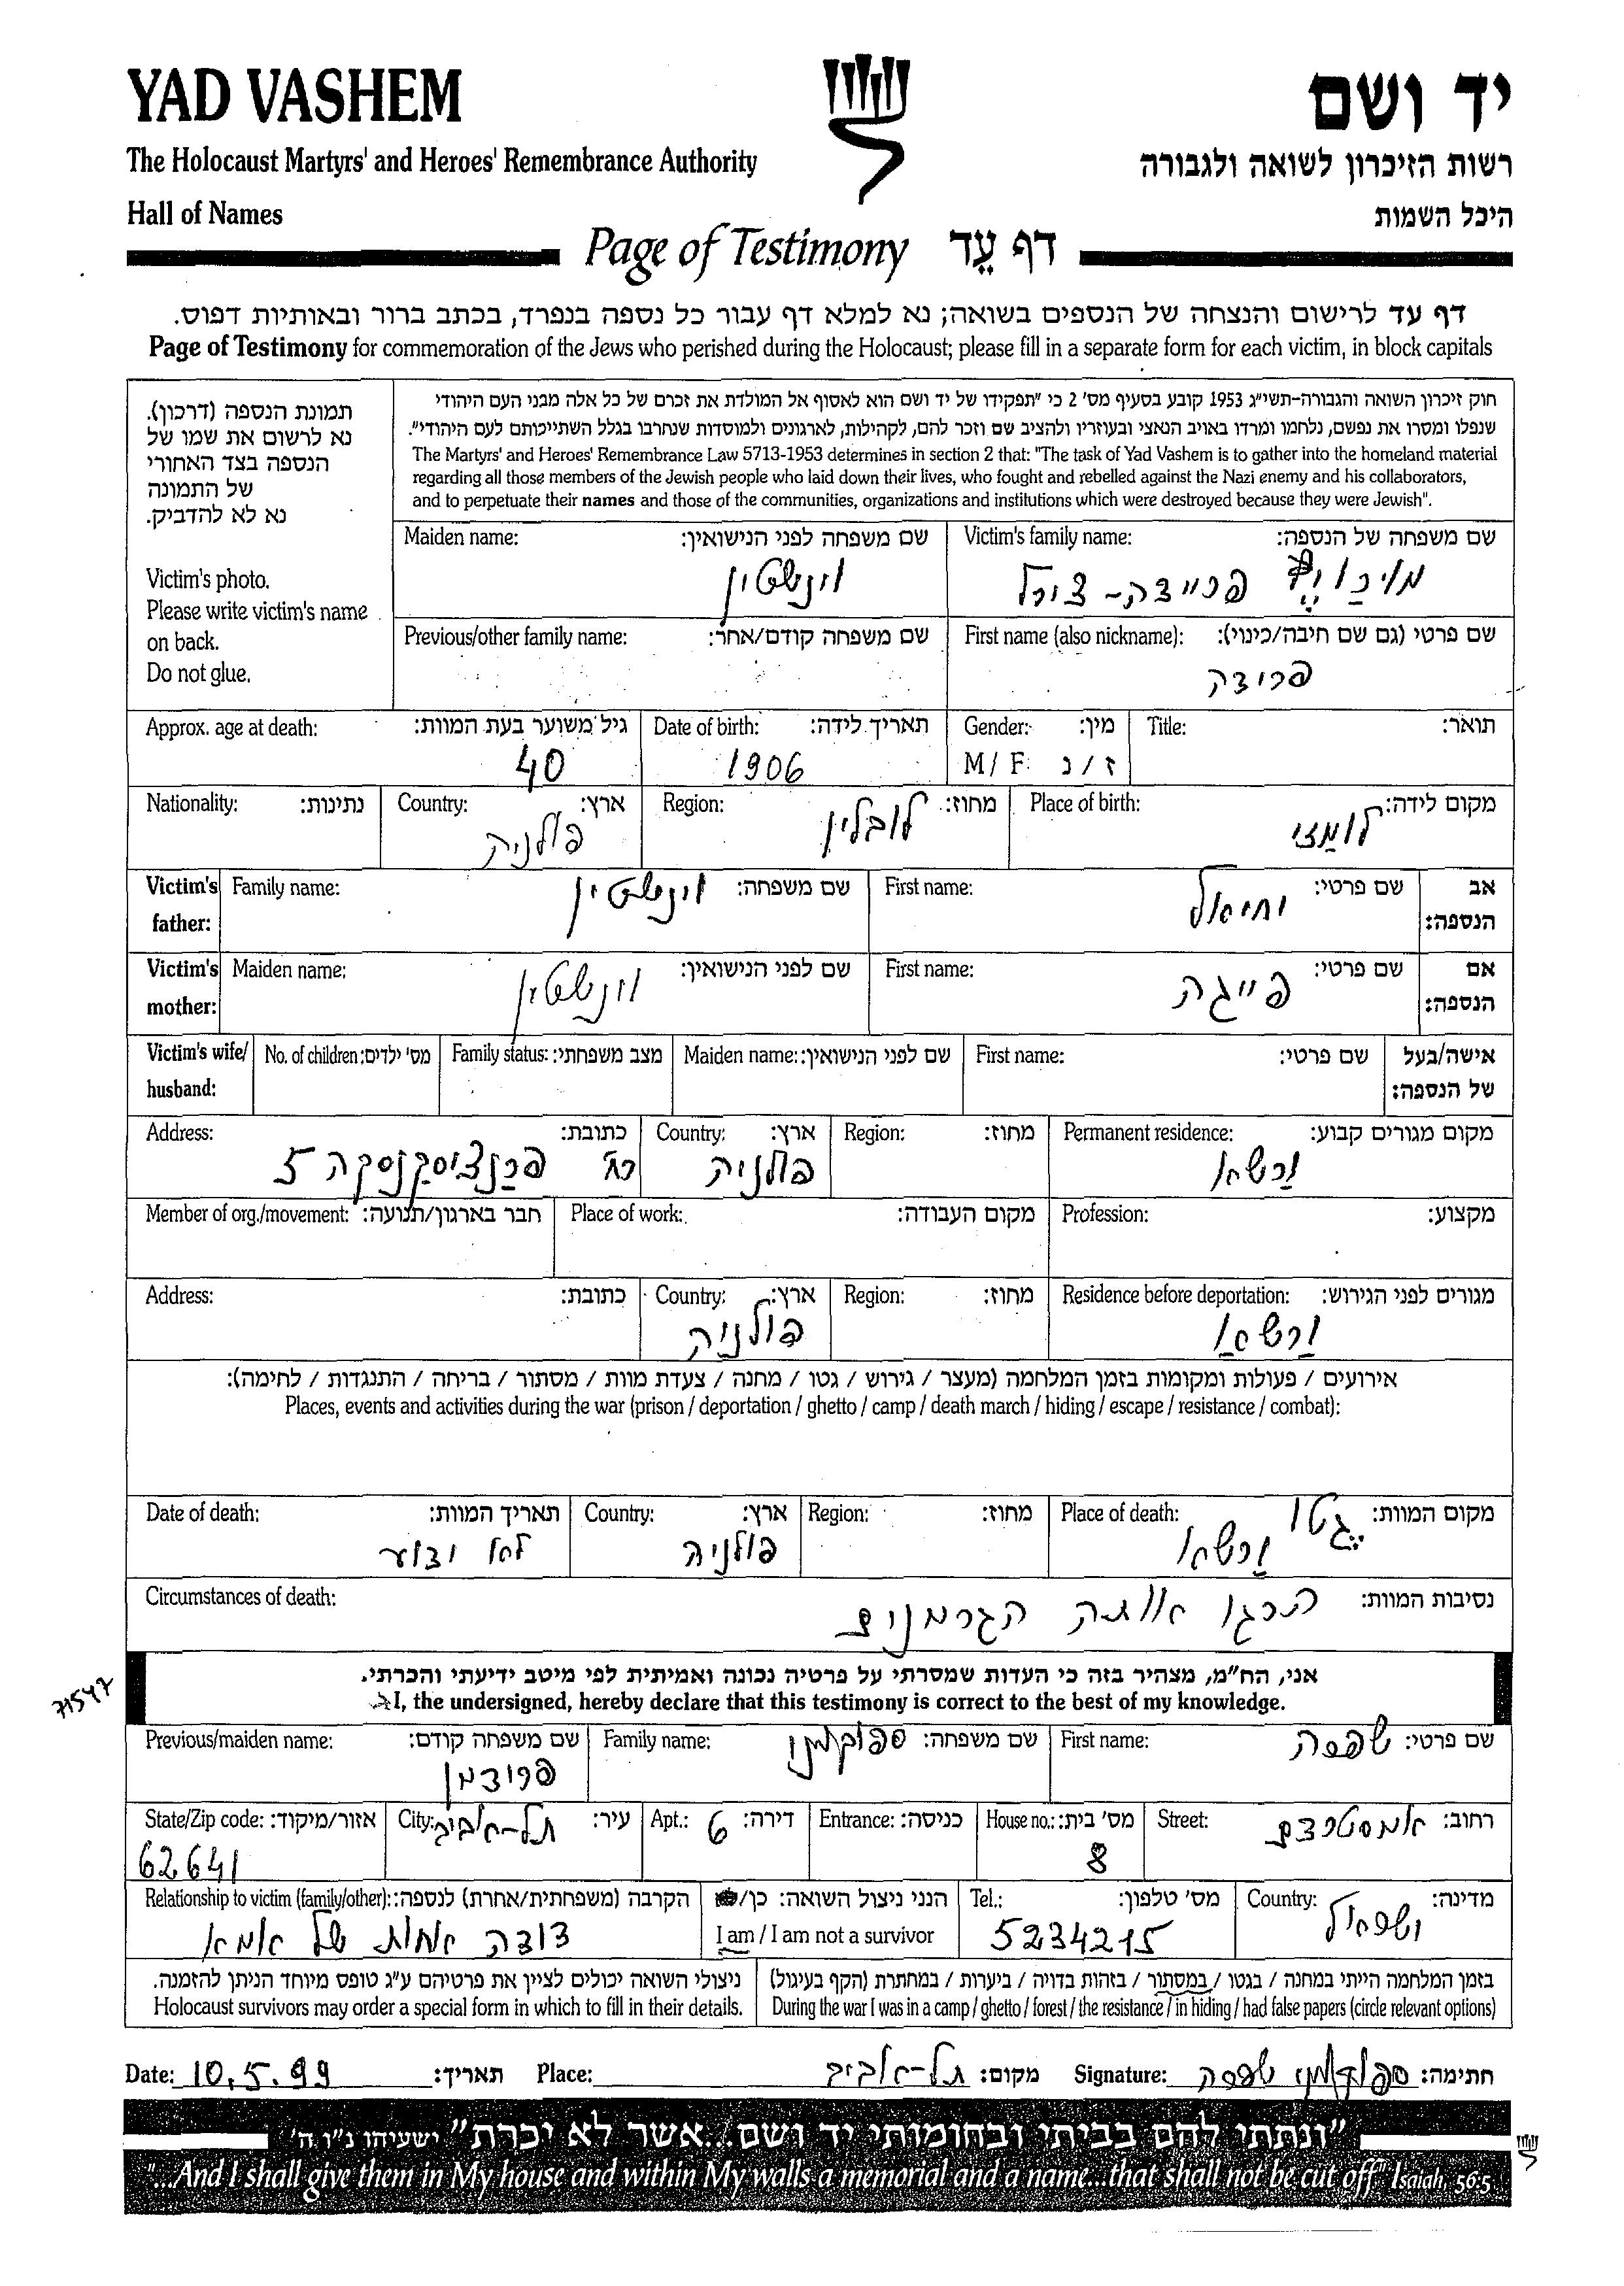 YAD VASHEM
יד ושם
The Holocaust Martyrs' and Heroes' Remembrance Authority
רשות הזיכרון לשואה ולגבורה
Hall of Names
היכל השמות
Page of Testimony דף עֵד
דף עד לרישום והנצחה של הנספים בשואה; נא למלא דף עבור כל נספה בנפרד, בכתב ברור ובאותיות דפוס.
Page of Testimony for commemoration of the Jews who perished during the Holocaust; please fill in a separate form for each victim, in block capitals
תמונת הנספה (דרכון).
נא לרשום את שמו של
הנספה בצד האחורי
של התמונה
נא לא להדביק.
Victim's photo.
Please write victim's name
on back.
Do not glue.
חוק זיכרון השואה והגבורה-תשי"ג 1953 קובע בסעיף מס' 2 כי "תפקידו של יד ושם הוא לאסוף אל המולדת את זכרם של כל אלה מבני העם היהודי
שנפלו ומסרו את נפשם, נלחמו ומרדו באויב הנאצי ובעוזריו ולהציב שם וזכר להם, לקהילות, לארגונים ולמוסדות שנחרבו בגלל השתייכותם לעם היהודי".
The Martyrs' and Heroes' Remembrance Law 5713-1953 determines in section 2 that: "The task of Yad Vashem is to gather into the homeland material
regarding all those members of the Jewish people who laid down their lives, who fought and rebelled against the Nazi enemy and his collaborators,
and to perpetuate their names and those of the communities, organizations and institutions which were destroyed because they were Jewish".
Victim's family name: שם משפחה של הנספה:
Maiden name: שם משפחה לפני הנישואין:
וינשטיין
First name (also nickname): שם פרטי (גם שם חיבה/כינוי):
פרידה
Previous/other family name: שם משפחה קודם/אחר:
Title: תואר:
Gender: מין:
M / F ז / נ
Date of birth: תאריך לידה:
1906
Approx. age at death: גיל משוער בעת המוות:
40
Place of birth: מקום לידה:
לומזי
Region: מחוז:
לובלין
Country: ארץ:
פולניה
Nationality: נתינות:
Victim's father: אב הנספה:
First name: שם פרטי:
יחיאל
Family name: שם משפחה:
וינשטיין
Victim's mother: אם הנספה:
First name: שם פרטי:
פייגה
Maiden name: שם לפני הנישואין:
וינשטיין
Victim's wife/husband: אישה/בעל של הנספה:
First name: שם פרטי:
Maiden name: שם לפני הנישואין:
Family status: מצב משפחתי:
No. of children: מס' ילדים:
Permanent residence: מקום מגורים קבוע:
ורשא
Region: מחוז:
Country: ארץ:
פולניה
Address: כתובת:
רח' פרנציסקנסקה 5
Profession: מקצוע:
Place of work: מקום העבודה:
Member of org./movement: חבר בארגון/תנועה:
Residence before deportation: מגורים לפני הגירוש:
ורשא
Region: מחוז:
Country: ארץ:
פולניה
Address: כתובת:
אירועים / פעולות ומקומות בזמן המלחמה (מעצר / גירוש / גטו / מחנה / צעדת מוות / מסתור / בריחה / התנגדות / לחימה):
Places, events and activities during the war (prison / deportation / ghetto / camp / death march / hiding / escape / resistance / combat):
Place of death: מקום המוות:
גטו ורשא
Region: מחוז:
Country: ארץ:
פולניה
Date of death: תאריך המוות:
לא ידוע
Circumstances of death: נסיבות המוות:
הרגו אותה הגרמנים
71547
אני, הח"מ, מצהיר בזה כי העדות שמסרתי על פרטיה נכונה ואמיתית לפי מיטב ידיעתי והכרתי.
I, the undersigned, hereby declare that this testimony is correct to the best of my knowledge.
First name: שם פרטי:
שפסה
Family name: שם משפחה:
Previous/maiden name: שם משפחה קודם:
פרידמן
Street: רחוב:
אמסטרדם
House no.: מס' בית:
8
Entrance: כניסה:
Apt.: דירה:
6
City: עיר:
תל-אביב
State/Zip code: אזור/מיקוד:
62641
Country: מדינה:
ישראל
Tel.: מס' טלפון:
5234215
הנני ניצול השואה: כן/
I am / I am not a survivor
Relationship to victim (family/other): הקרבה (משפחתית/אחרת) לנספה:
דודה אחות של אמא
בזמן המלחמה הייתי במחנה / בגטו / במסתור / בזהות בדויה / ביערות / במחתרת (הקף בעיגול)
During the war I was in a camp / ghetto / forest / the resistance / in hiding / had false papers (circle relevant options)
ניצולי השואה יכולים לציין את פרטיהם ע"ג טופס מיוחד הניתן להזמנה.
Holocaust survivors may order a special form in which to fill in their details.
Date: 10.5.99 תאריך: Place: תל-אביב מקום: Signature: שפסה חתימה:
"ונתתי להם בביתי ובחומותי יד ושם...אשר לא יכרת" ישעיהו נ"ו ה'
"...And I shall give them in My house and within My walls a memorial and a name...that shall not be cut off" Isaiah 56:5